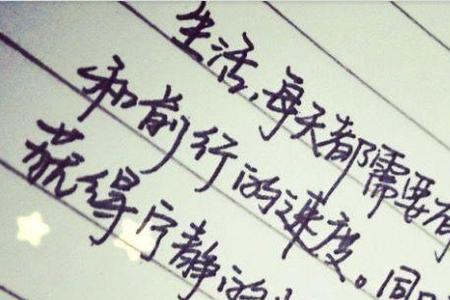 生活,每天都需要有
和前行的速度。同
获得宁静的